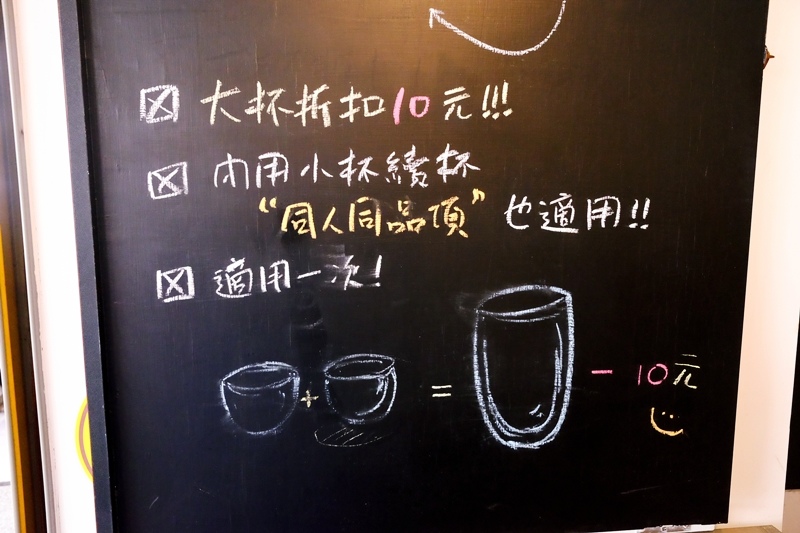 ☒ 大杯折扣10元!!!
☒ 內用小杯續杯
“同人同品項” 也適用!!
☒ 適用一次!
+ = - 10元